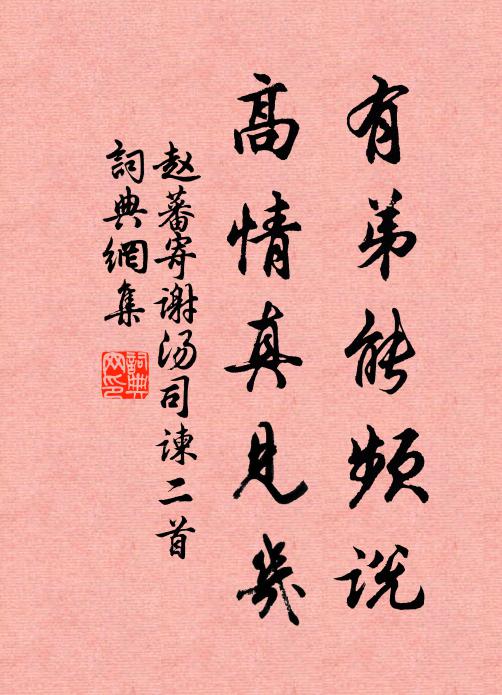 有弟能频说
高情真见几
赵蕃寄谢汤司谏二首
词典網集
詞典网印